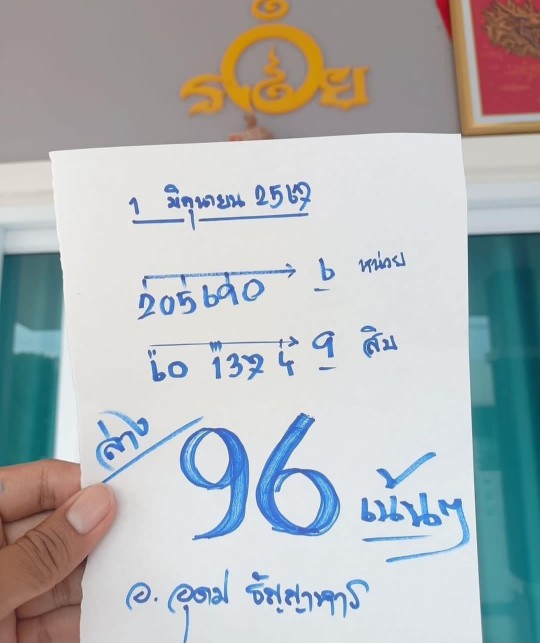 รวย
1 มิถุนายน 2567
205690 → 6 หน่วย
60 1374 → 9 สิบ
ล่าง 96 เน้นๆ
อ. อุดม ธัญญาหาร